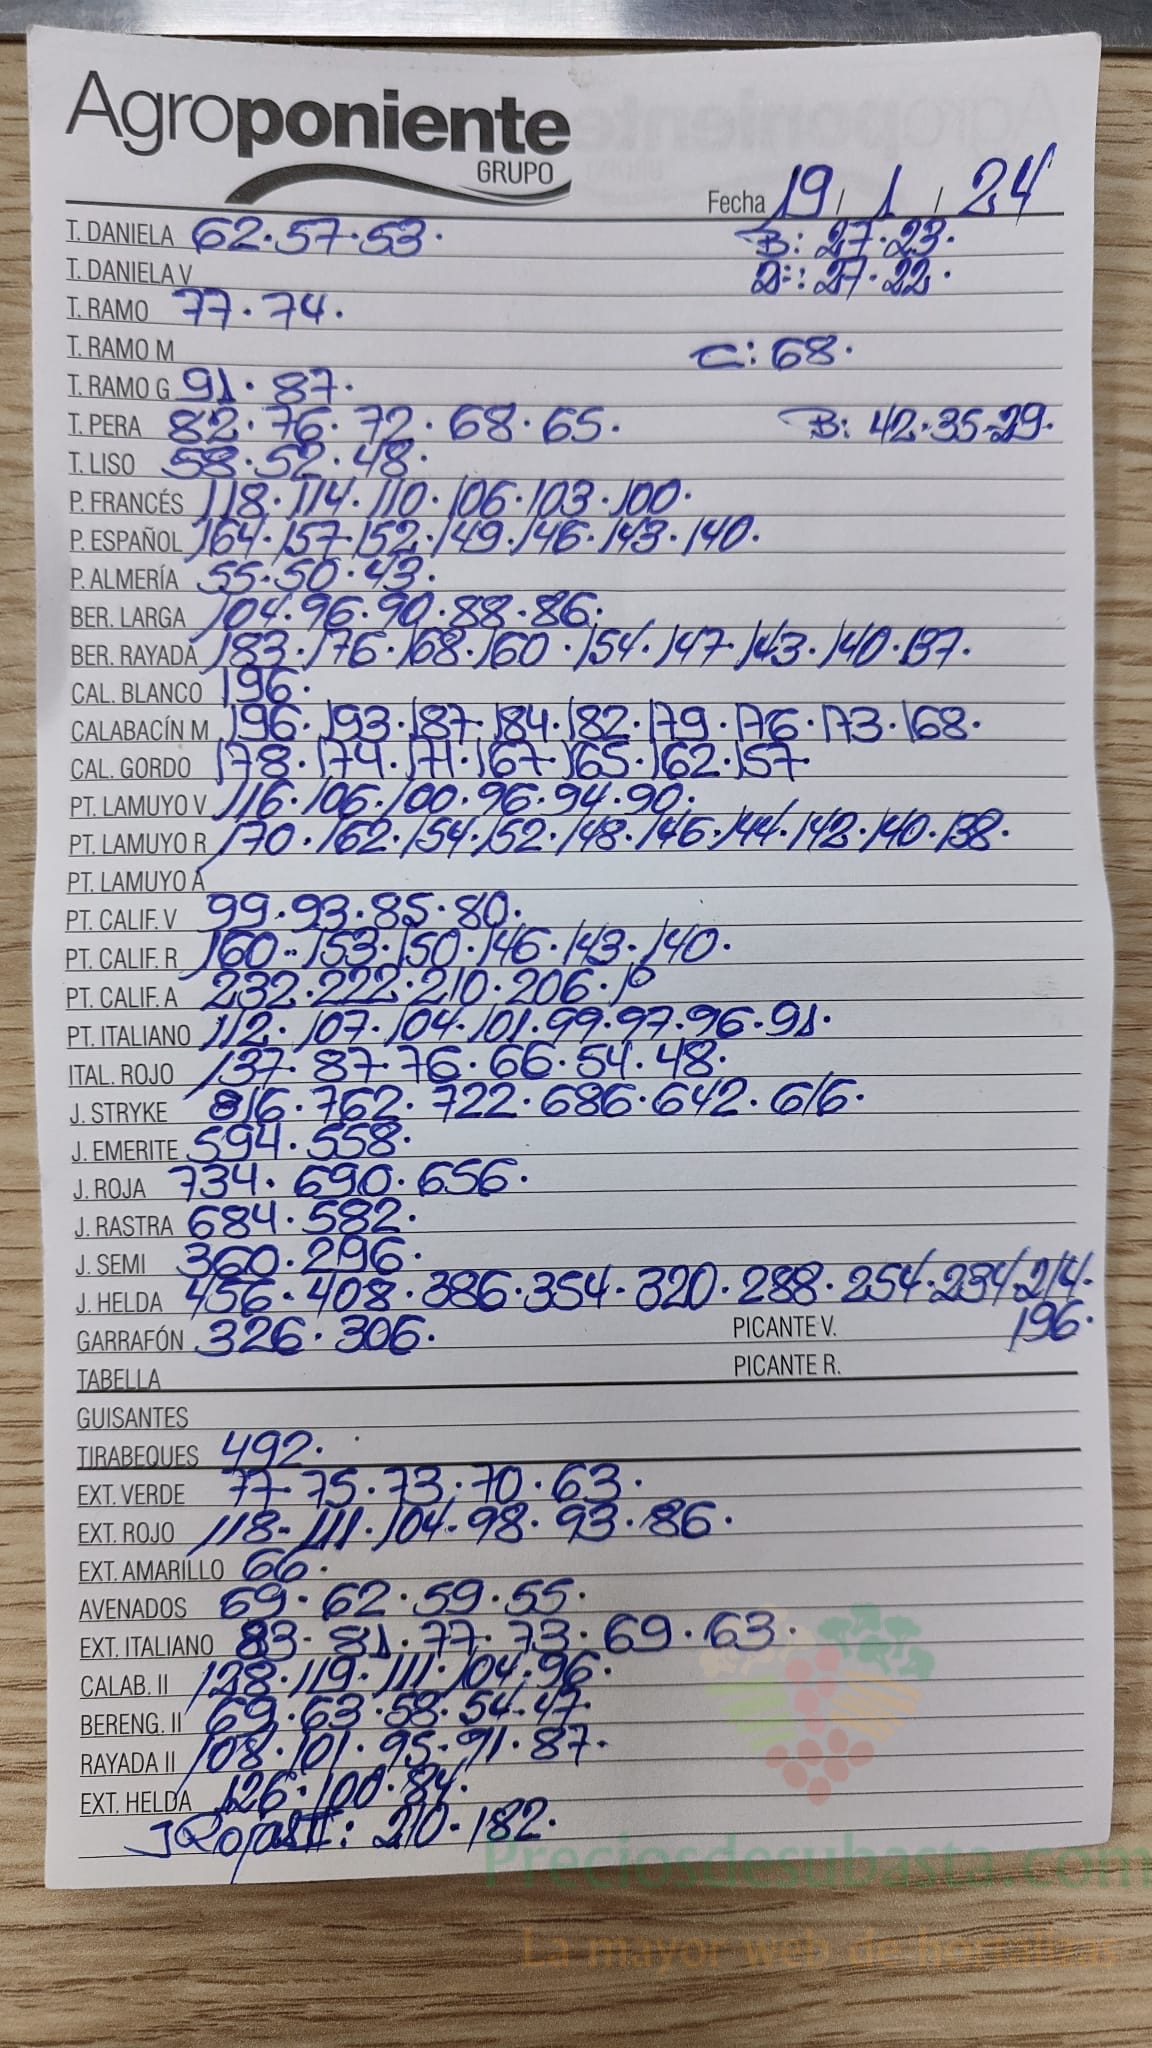 Agroponiente
GRUPO
Fecha 19 / 1 / 24
T. DANIELA 62.57.53. B: 27.23.
T. DANIELA V : 27.22.
T. RAMO 77.74.
T. RAMO M C: 68.
T. RAMO G 91. 87.
T. PERA 82.76.72.68.65. B: 42.35.29.
T. LISO 58.52.48.
P. FRANCÉS 118.114.110.106.103.100.
P. ESPAÑOL 164.157.152.149.146.143.140.
P. ALMERÍA 55.50.43.
BER. LARGA 104.96.90.88.86.
BER. RAYADA 183.176.168.160.154.147.143.140.137.
CAL. BLANCO 196.
CALABACÍN M 196.193.187.184.182.179.176.173.168.
CAL. GORDO 178.174.171.167.165.162.157.
PT. LAMUYO V 116.106.100.96.94.90.
PT. LAMUYO R 170.162.154.152.148.146.144.142.140.138.
PT. LAMUYO A
PT. CALIF. V 99.93.85.80.
PT. CALIF. R 160.153.150.146.143.140.
PT. CALIF. A 232.222.210.206.
PT. ITALIANO 112.107.104.101.99.97.96.91.
ITAL. ROJO 137.87.76.66.54.48.
J. STRYKE 816.762.722.686.642.616.
J. EMERITE 594.558.
J. ROJA 734.690.656.
J. RASTRA 684.582.
J. SEMI 360.296.
J. HELDA 456.408.386.354.320.288.254.234.214.
GARRAFÓN 326.306. PICANTE V. 196.
TABELLA PICANTE R.
GUISANTES
TIRABEQUES 492.
EXT. VERDE 77.75.73.70.63.
EXT. ROJO 118-111.104-98.93.86.
EXT. AMARILLO 66.
AVENADOS 69.62.59.55.
EXT. ITALIANO 83-81.77.73.69.63.
CALAB. II 128.119.111.104.96.
BERENG. II 69.63.58.54.47.
RAYADA II 108.101.95.91.87.
EXT. HELDA 126.100.84.
J Rojas II: 210.182.
Preciosdesubasta.com
La mayor web de hortalizas